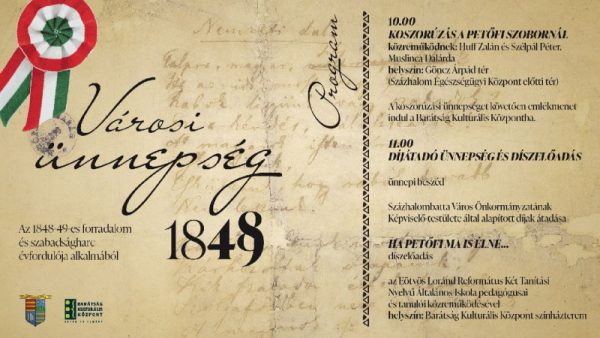 Városi
ünnepség
1848
Az 1848-49-es forradalom
és szabadságharc
évfordulója alkalmából
BARÁTSÁG
KULTURÁLIS
KÖZPONT
Nemzeti dal
Program
10.00
KOSZORÚZÁS A PETŐFI SZOBORNÁL
közreműködnek: Huff Zalán és Szélpál Péter,
Muslinca Dalárda
helyszín: Göncz Árpád tér
(Százhalom Egészségügyi Központ előtti tér)
A koszorúzási ünnepséget követően emlékmenet
indul a Barátság Kulturális Központba.
11.00
DÍJÁTADÓ ÜNNEPSÉG ÉS DÍSZELŐADÁS
ünnepi beszéd
Százhalombatta Város Önkormányzatának
Képviselő-testülete által alapított díjak átadása
HA PETŐFI MA IS ÉLNE...
díszelőadás
az Eötvös Loránd Református Két Tanítási
Nyelvű Általános Iskola pedagógusai
és tanulói közreműködésével
helyszín: Barátság Kulturális Központ színházterem